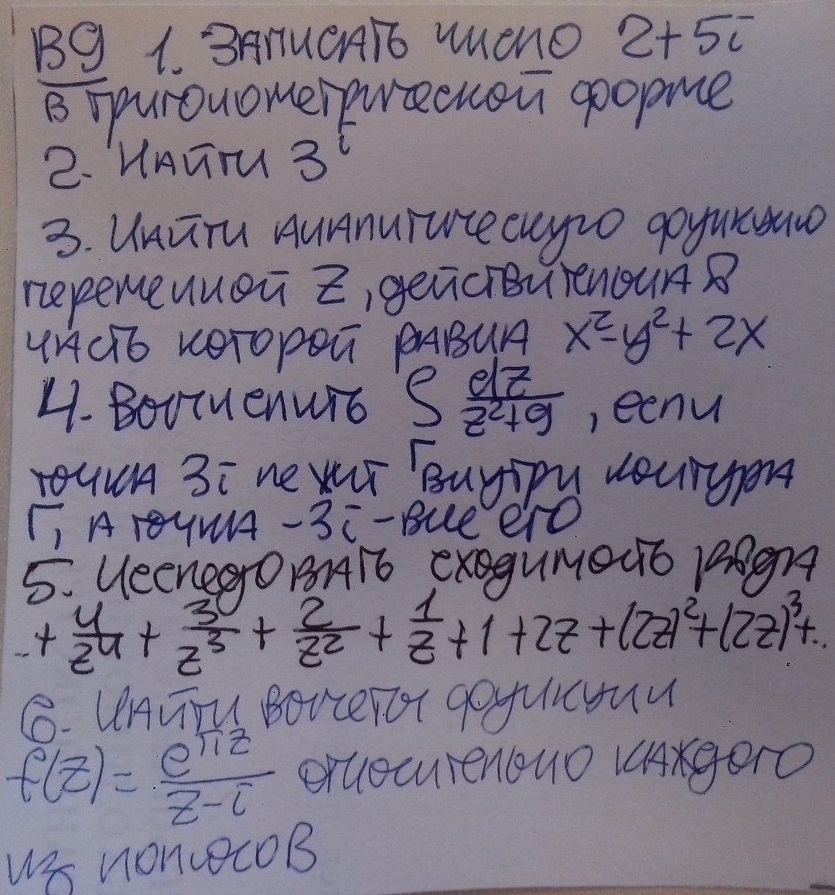 В9 1. Записать число 2+5i
в тригонометрической форме
2. Найти 3^i
3. Найти аналитическую функцию
переменной z, действительная
часть которой равна x²-y²+2x
4. Вычислить ∫_Γ dz/(z²+9), если
точка 3i лежит внутри контура
Γ, а точка -3i - вне его
5. Исследовать сходимость ряда
..+ 4/z⁴ + 3/z³ + 2/z² + 1/z + 1 + 2z + (2z)² + (2z)³ + ..
6. Найти вычеты функции
f(z) = e^(πz)/(z-i) относительно каждого
из полюсов